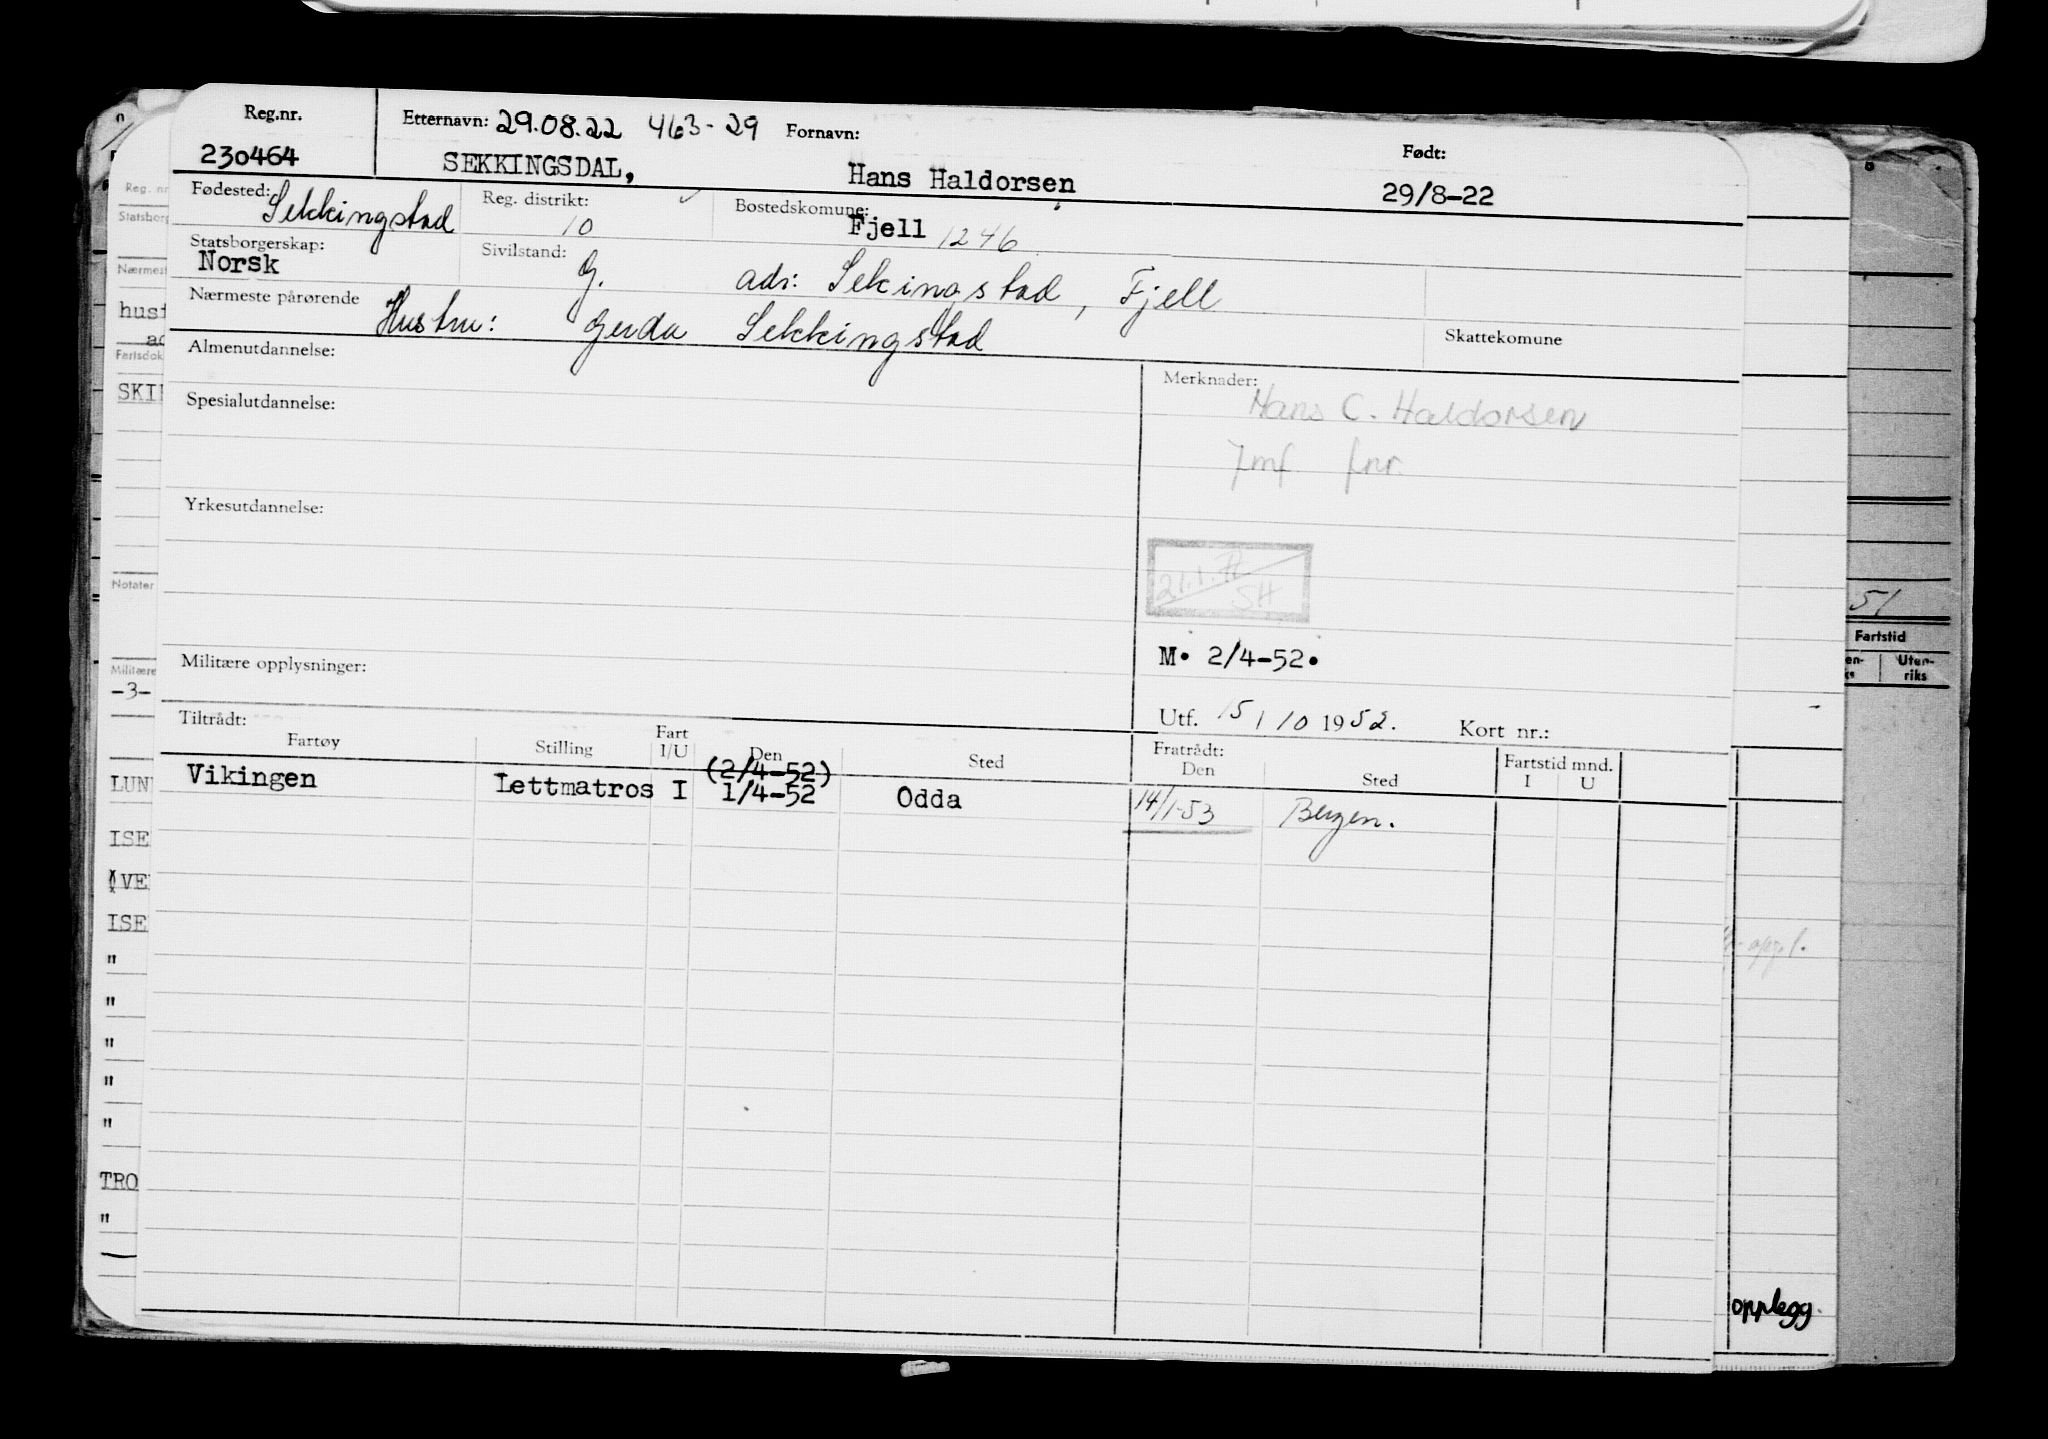 Reg.nr. Etternavn: 29.08.22 463-29 Fornavn: Født:
230464 SEKKINGSDAL, Hans Haldorsen 29/8-22
Fødested: Sekkingstad Reg. distrikt: 10 Bostedskomune: Fjell 1246
Statsborgerskap: Norsk Sivilstand: G. adr: Sekingstad, Fjell
Nærmeste pårørende Hustru: Gerda Sekkingstad Skattekomune
Almenutdannelse: Merknader:
Hans C. Haldorsen
Spesialutdannelse:
Jmf fnr.
Yrkesutdannelse:
21.1.77
SH
Militære opplysninger: M. 2/4-52.
Tiltrådt: Utf. 15/10 1952. Kort nr.:
Fartøy Stilling Fart I/U Den Sted Fratrådt: Den Sted Fartstid mnd. I U
(2/4-52)
Vikingen Lettmatros I 1/4-52 Odda 14/1-53 Bergen.
Reg. nr
Statsborg
Nærmest
husf
ad
Fartsdok
SKI
Notater
Militære
-3-
LUN
ISE
VE
ISE
"
"
"
"
"
TRO
"
51
Fartstid
en- Uten-
riks
opplegg.